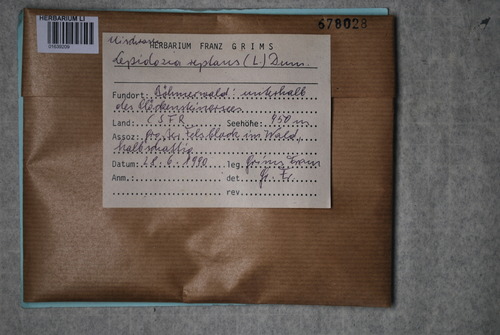 HERBARIUM LI
678028
HERBARIUM FRANZ GRIMS
Lepidozia reptans (L.) Dum.
Fundort: Böhmerwald: unterhalb
des Plöckensteinersees
Land: CSFR Seehöhe: 950 m
Assoz: großer Felsblock im Wald,
halbschattig
Datum: 28.6.1990 leg. Grims Franz
Anm.: det. Gr. Fr.
rev.